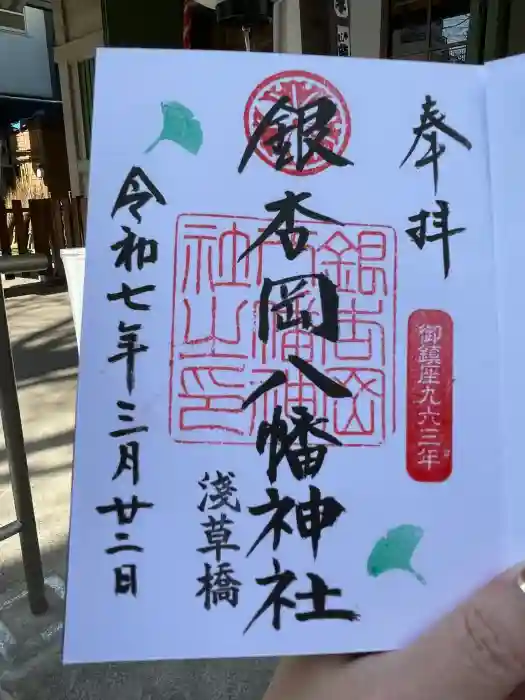 奉拝
御鎮座九六三年
銀杏岡八幡神社
銀杏岡
八幡神
社之印
浅草橋
令和七年三月廿二日